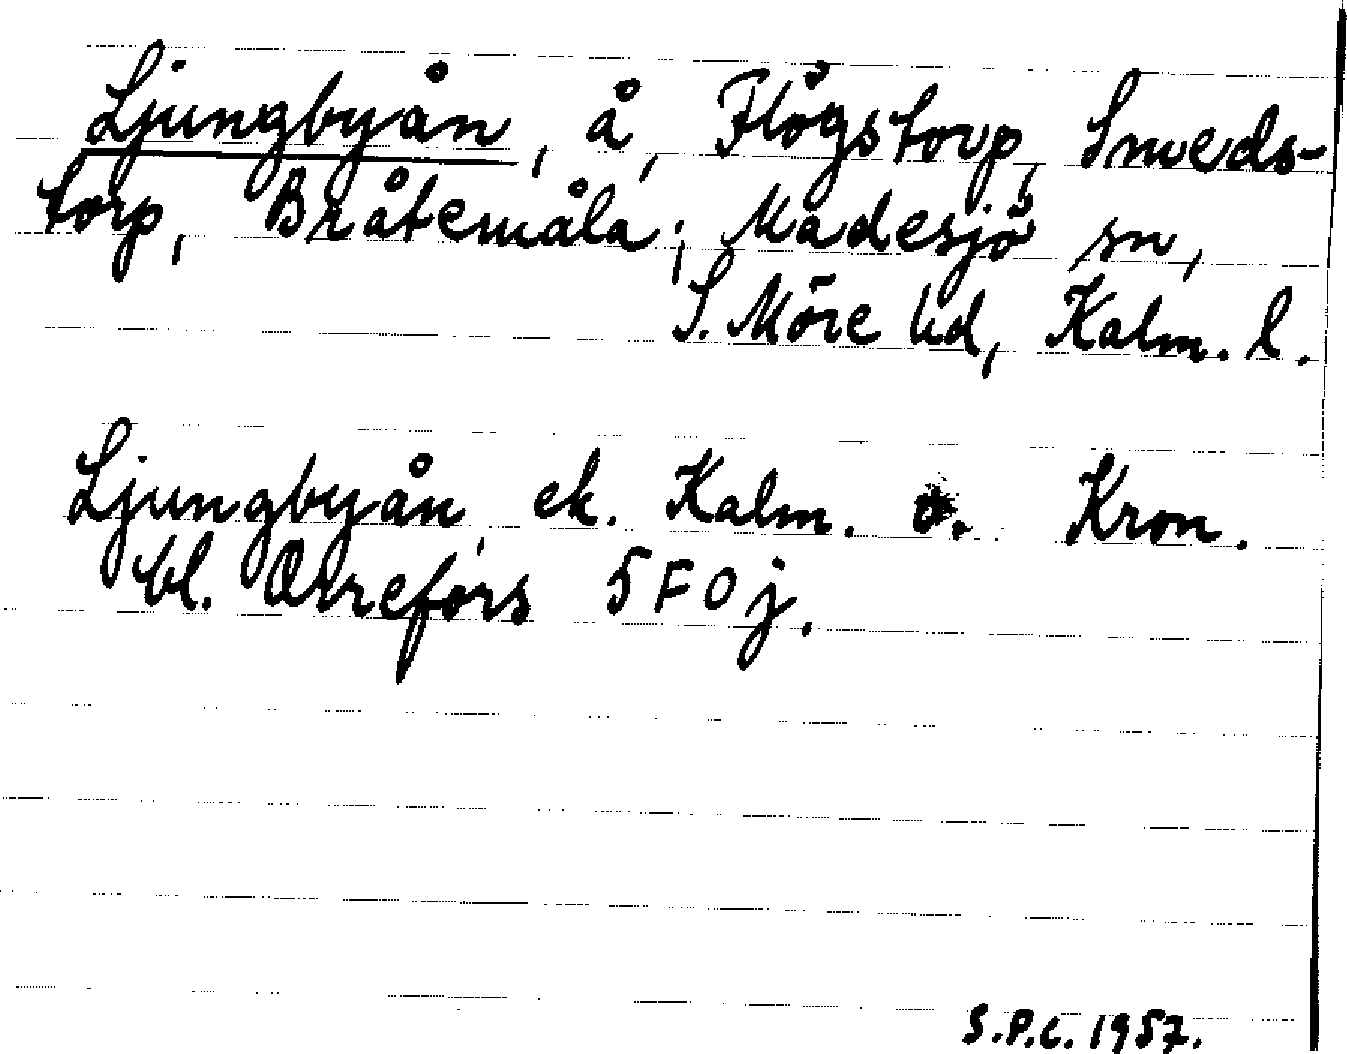 Ljungbyån, å, Flögstorp, Smeds-
torp, Bråtemåla; Madesjö sn,
S. Möre hd, Kalm. l.
Ljungbyån, ek. Kalm. o. Kron.
bl. Orrefors 5F0j.
S.P.C. 1957.